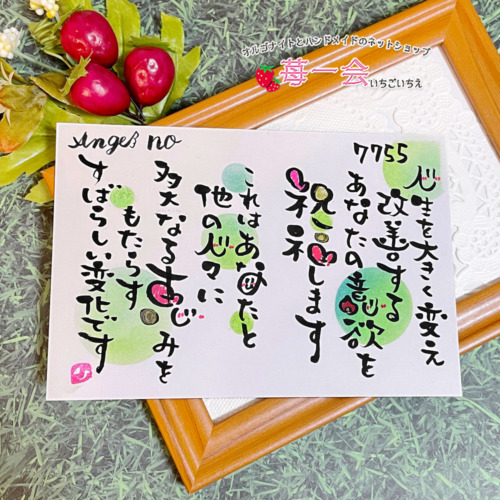 オルゴナイトとハンドメイドのネットショップ
苺一会 いちごいちえ
Angel no 7755
人生を大きく変え
改善する
あなたの意欲を
祝福します
これはあなたと
他の人々に
多大なる恵みを
もたらす
すばらしい変化です